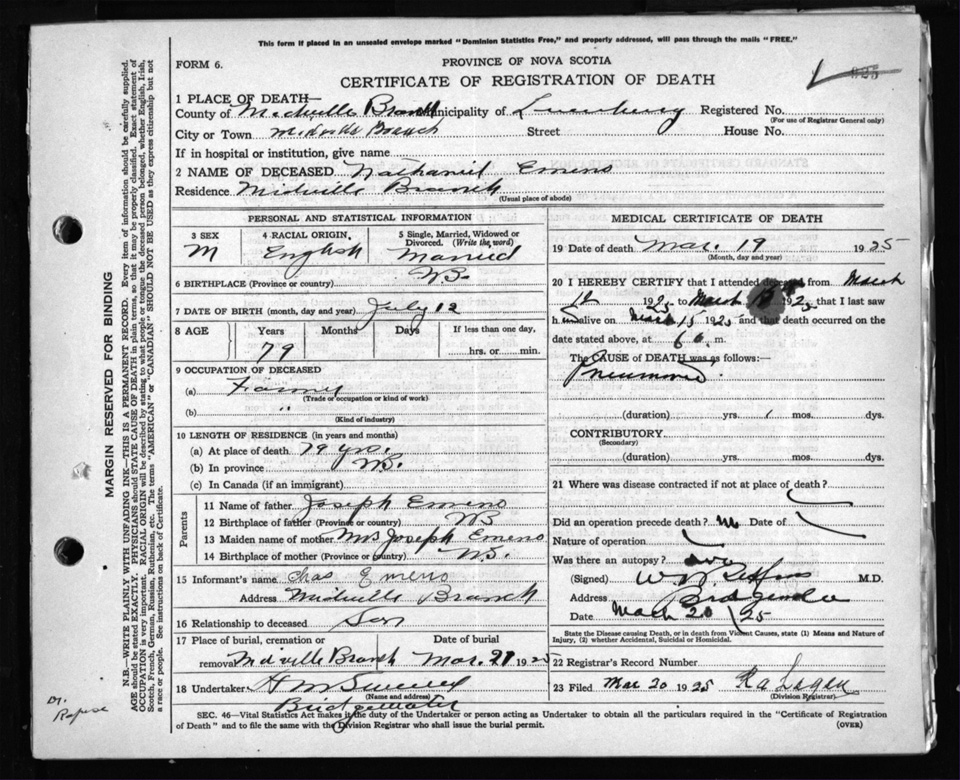 This form if placed in an unsealed envelope marked "Dominion Statistics Free," and properly addressed, will pass through the mails "FREE."
FORM 6.
PROVINCE OF NOVA SCOTIA
CERTIFICATE OF REGISTRATION OF DEATH
925
1 PLACE OF DEATH—
County of Midville Branch Municipality of Lunenburg Registered No.
(For use of Registrar General only)
City or Town Midville Branch Street House No.
If in hospital or institution, give name
2 NAME OF DECEASED Nathaniel Emeno
Residence Midville Branch
(Usual place of abode)
PERSONAL AND STATISTICAL INFORMATION
3 SEX
M
4 RACIAL ORIGIN.
English
5 Single, Married, Widowed or Divorced. (Write the word)
Married
6 BIRTHPLACE (Province or country) N.S.
7 DATE OF BIRTH (month, day and year) July 12
8 AGE Years Months Days If less than one day,
79 hrs. or min.
9 OCCUPATION OF DECEASED
(a) Farmer
(Trade or occupation or kind of work)
(b) "
(Kind of industry)
10 LENGTH OF RESIDENCE (in years and months)
(a) At place of death 79 yrs.
(b) In province N.S.
(c) In Canada (if an immigrant)
Parents
11 Name of father Joseph Emeno
12 Birthplace of father (Province or country) N.S.
13 Maiden name of mother Mrs Joseph Emeno
14 Birthplace of mother (Province or country) N.S.
15 Informant's name Chas Emeno
Address Midville Branch
16 Relationship to deceased Son
17 Place of burial, cremation or removal Date of burial
Midville Branch Mar. 21 1925
18 Undertaker H M
(Name and address)
Bridgewater
MEDICAL CERTIFICATE OF DEATH
19 Date of death Mar. 19 1925
(Month, day and year)
20 I HEREBY CERTIFY that I attended deceased from March
12 1925 to March 1925 that I last saw
h alive on March 15 1925 and that death occurred on the
date stated above, at 6 a. m.
The CAUSE of DEATH was as follows:
Pneumonia
(duration) yrs. mos. dys.
CONTRIBUTORY
(Secondary)
(duration) yrs. mos. dys.
21 Where was disease contracted if not at place of death?
Did an operation precede death? no Date of
Nature of operation
Was there an autopsy?
(Signed) M.D.
Address Bridgewater
Date March 20 / 25
State the Disease causing Death, or in death from Violent Causes, state (1) Means and Nature of Injury, (2) whether Accidental, Suicidal or Homicidal.
22 Registrar's Record Number
23 Filed Mar 20 1925
(Division Registrar)
SEC. 46—Vital Statistics Act makes it the duty of the Undertaker or person acting as Undertaker to obtain all the particulars required in the "Certificate of Registration
of Death" and to file the same with the Division Registrar who shall issue the burial permit.
(OVER)
MARGIN RESERVED FOR BINDING
N.B.—WRITE PLAINLY WITH UNFADING INK—THIS IS A PERMANENT RECORD. Every item of information should be carefully supplied.
AGE should be stated EXACTLY. PHYSICIANS should STATE CAUSE OF DEATH in plain terms, so that it may be properly classified. Exact statement of
OCCUPATION is very important. RACIAL ORIGIN will be described by stating to what people or tongue the deceased person belonged, whether English, Irish,
Scotch, French, German, Russian, Ruthenian, etc. The terms "AMERICAN" or "CANADIAN" SHOULD NOT BE USED as they express citizenship but not
a race or people. See instructions on back of Certificate.